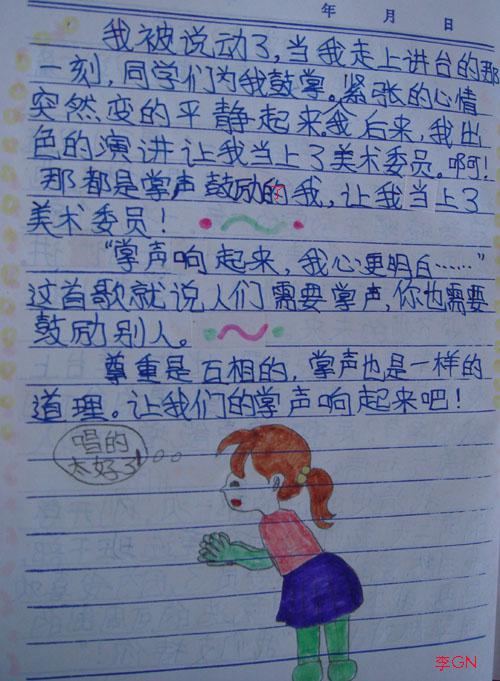 年 月 日
我被说动了,当我走上讲台的那
一刻,同学们为我鼓掌。紧张的心情
突然变的平静起来,我后来,我出
色的演讲让我当上了美术委员。啊!
那都是掌声鼓励的我,让我当上了
美术委员!
“掌声响起来,我心更明白……”
这首歌就说人们需要掌声,你也需要
鼓励别人。
尊重是互相的,掌声也是一样的
道理。让我们的掌声响起来吧!
唱的
太好了!
李GN